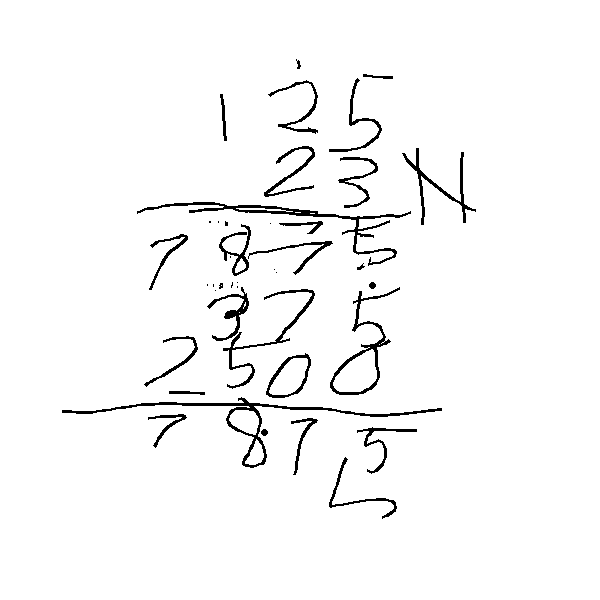 125
23 N
7875
375
2500
7875
5